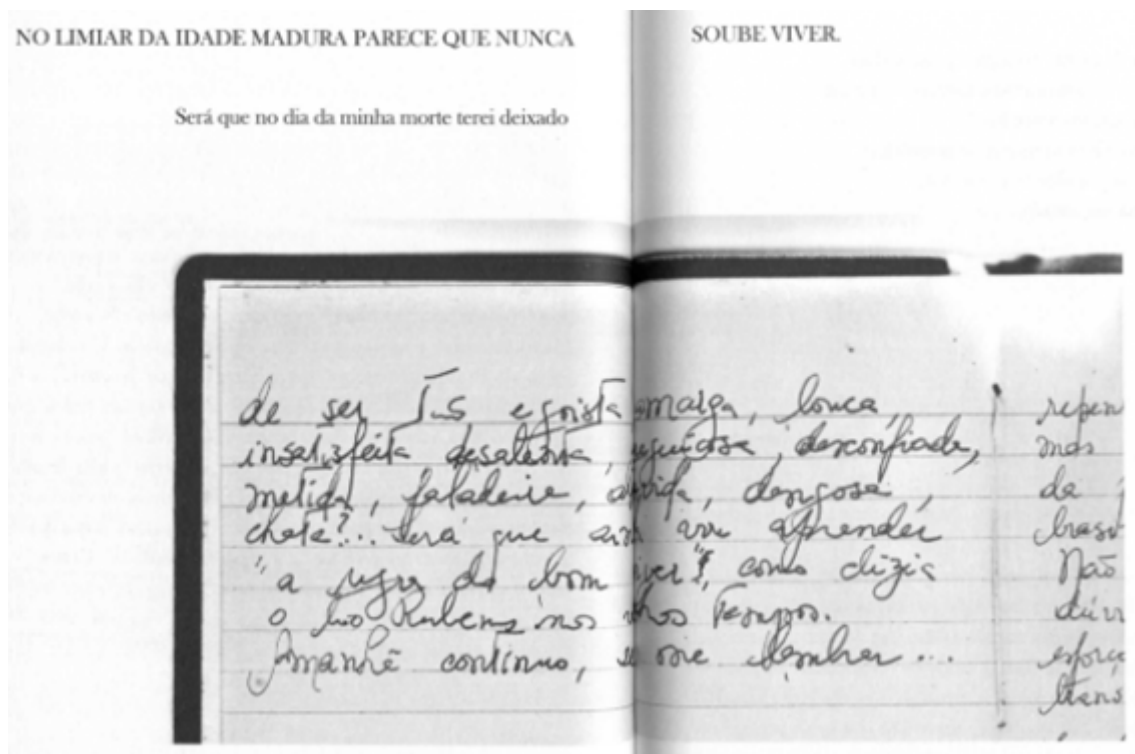 NO LIMIAR DA IDADE MADURA PARECE QUE NUNCA SOUBE VIVER.
Será que no dia da minha morte terei deixado
de ser egoista amarga, louca,
insatisfeita desatenta, desconfiada,
metida, faladeira, dengosa,
chata!?... Será que aprender
"a regra do bom viver", como dizia
o tio Rubens nos tempos.
Amanhã continuo, se me lembrar...
repen
mas
da
Não